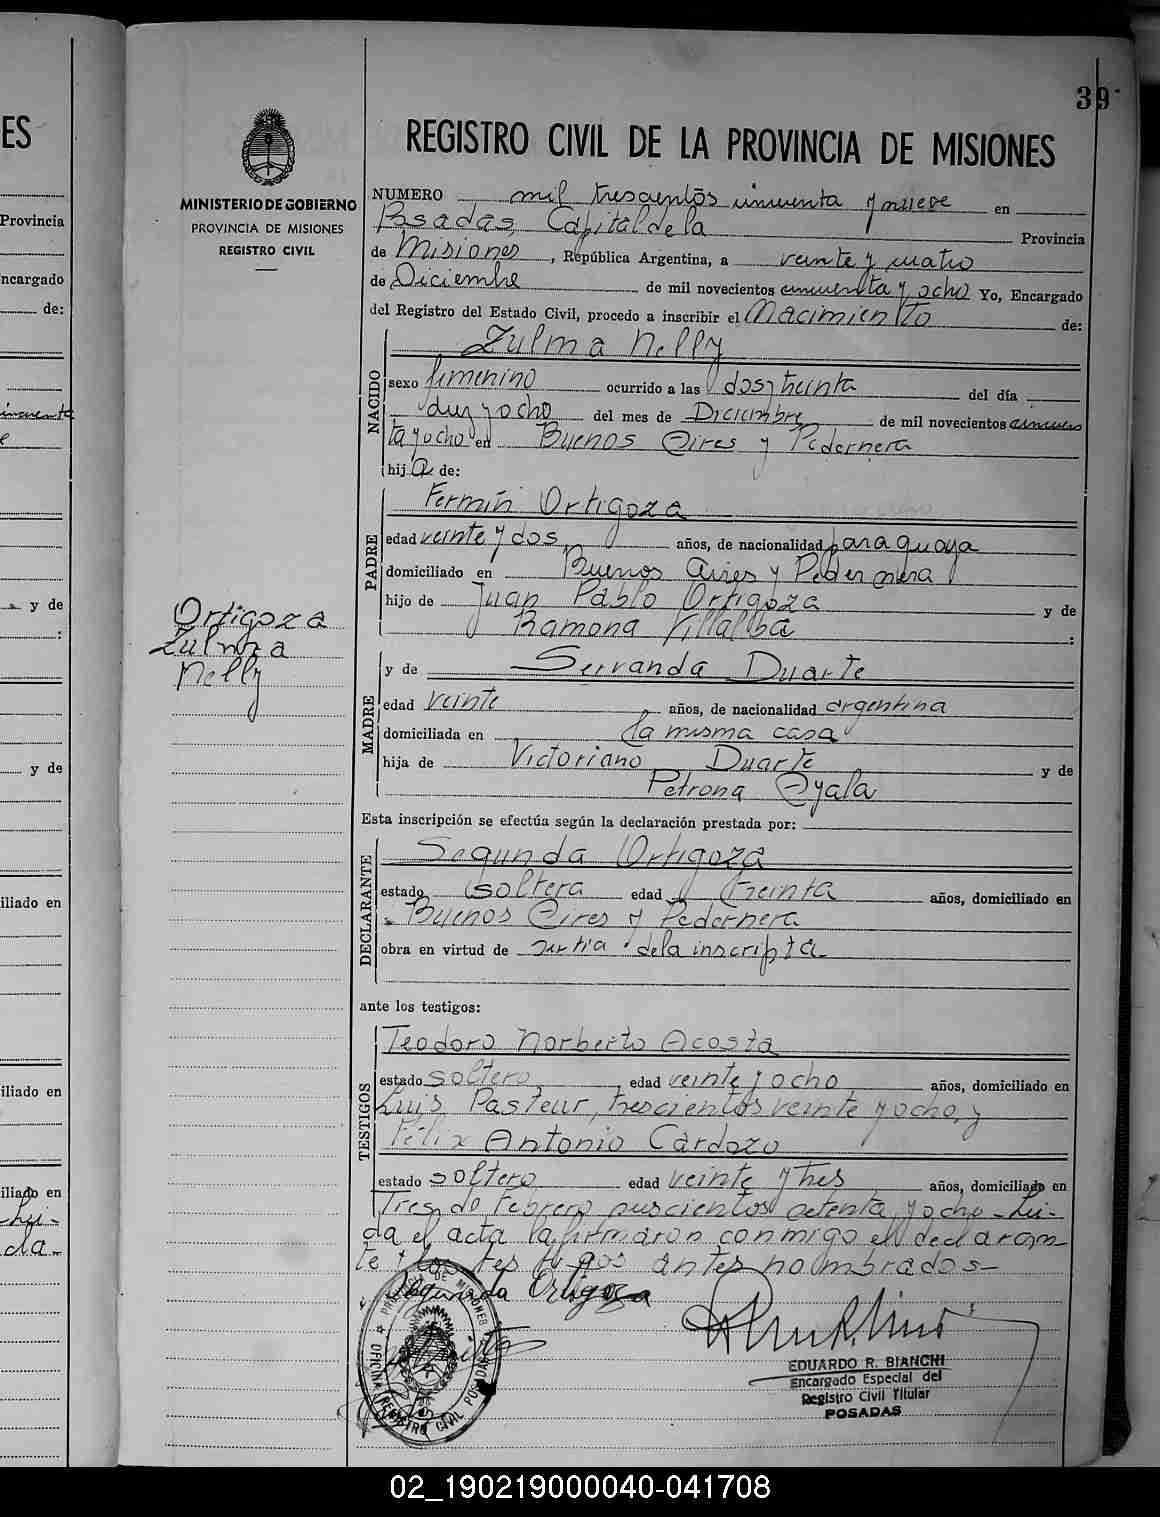 39
ES
REGISTRO CIVIL DE LA PROVINCIA DE MISIONES
MINISTERIO DE GOBIERNO
PROVINCIA DE MISIONES
REGISTRO CIVIL
NUMERO mil trescientos cincuenta y nueve en
Posadas, Capital de la Provincia
de Misiones, República Argentina, a veinte y cuatro
de Diciembre de mil novecientos cincuenta y ocho Yo, Encargado
del Registro del Estado Civil, procedo a inscribir el Nacimiento de:
NACIDO
Zulma Nelly
sexo femenino ocurrido a las dos y treinta del día
diez y ocho del mes de Diciembre de mil novecientos cincuen
ta y ocho en Buenos Aires y Pedernera
hija de:
PADRE
Fermín Ortigoza
edad veinte y dos años, de nacionalidad paraguaya
domiciliado en Buenos Aires y Pedernera
hijo de Juan Pablo Ortigoza y de
Ramona Villalba :
Ortigoza
Zulma
Nelly
MADRE
y de Servanda Duarte
edad veinte años, de nacionalidad argentina
domiciliada en la misma casa
hija de Victoriano Duarte y de
Petrona Ayala
Esta inscripción se efectúa según la declaración prestada por:
DECLARANTE
Segunda Ortigoza
estado soltera edad treinta años, domiciliado en
Buenos Aires y Pedernera
obra en virtud de ser tia de la inscripta
ante los testigos:
TESTIGOS
Teodoro Norberto Acosta
estado soltero, edad veinte y ocho años, domiciliado en
Luis Pasteur, trescientos veinte y ocho, y
Félix Antonio Cardozo
estado soltero edad veinte y tres años, domiciliado en
Tres de Febrero setenta y ocho - Lei-
da el acta la firmaron conmigo el declaran-
te y los testigos antes nombrados-
Segunda Ortigoza
PROVINCIA DE MISIONES
OFICINA REGISTRO CIVIL POSADAS
EDUARDO R. BIANCHI
Encargado Especial del
Registro Civil Titular
POSADAS
Provincia
ncargado
de:
y de
:
y de
iliado en
iliado en
iliado en
02_190219000040-041708